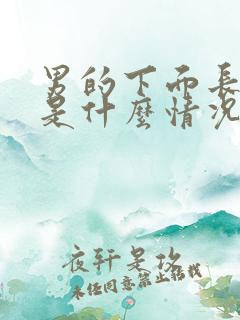 男的下面長
是什麼情況
夜轩是攻
未经同意禁止转载